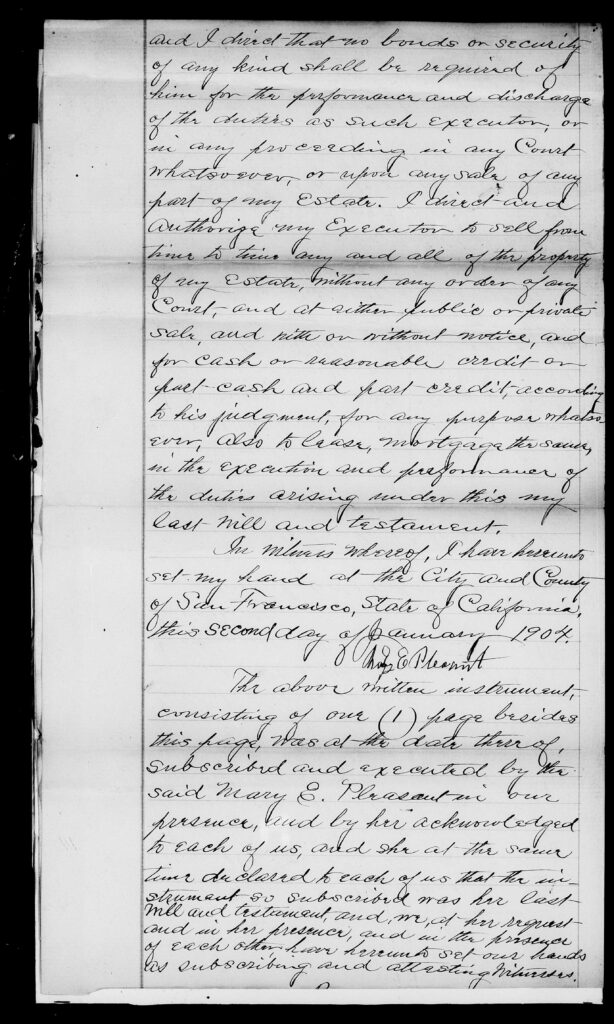 and I direct that no bonds or security
of any kind shall be required of
him for the performance and discharge
of the duties as such executor, or
in any proceeding in any Court
whatsoever, or upon any sale of any
part of my Estate. I direct and
authorize my Executor to sell from
time to time any and all of the property
of my Estate, without any order of any
Court, and at either public or private
sale, and with or without notice, and
for cash or reasonable credit or
part cash and part credit, according
to his judgment, for any purpose whatso
ever, also to lease, mortgage the same,
in the execution and performance of
the duties arising under this my
last will and testament.
In witness whereof, I have hereunto
set my hand at the City and County
of San Francisco, State of California,
this second day of January 1904.
Mary E Pleasant
The above written instrument,
consisting of one (1) page besides
this page, was at the date thereof,
subscribed and executed by the
said Mary E. Pleasant in our
presence, and by her acknowledged
to each of us, and she at the same
time declared to each of us that the in-
strument so subscribed was her last
will and testament, and, we, at her request
and in her presence, and in the presence
of each other, have hereunto set our hands
as subscribing and attesting witnesses.